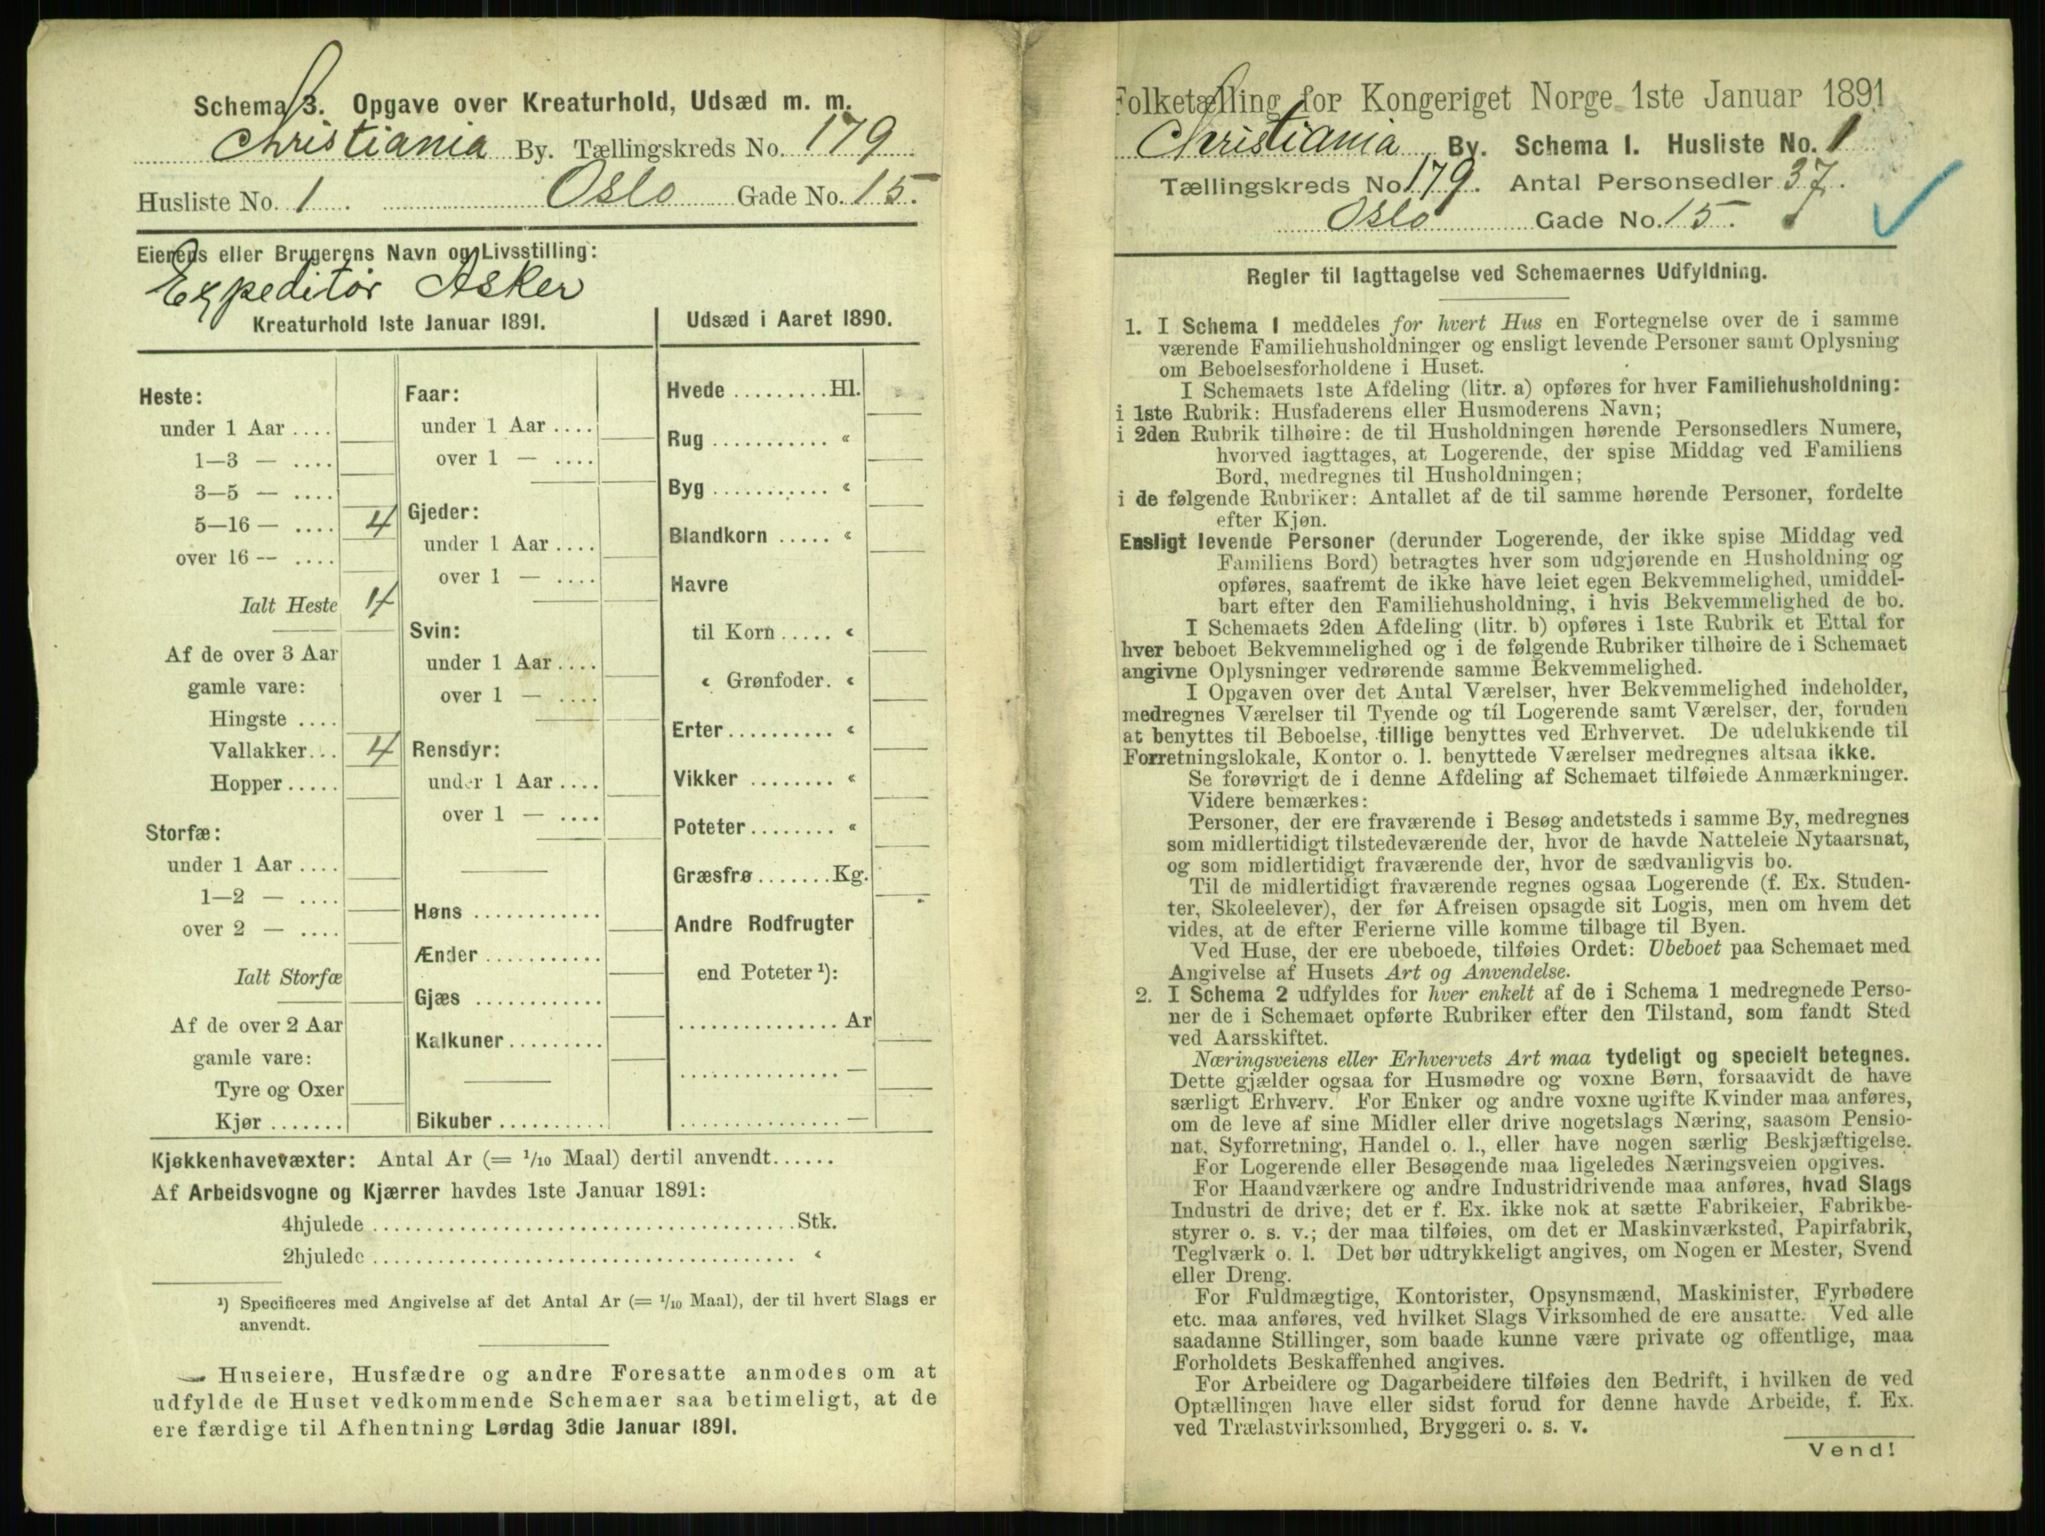 Schema 3. Opgave over Kreaturhold, Udsæd m. m.
Christiania By. Tællingskreds No. 179
Husliste No. 1. Oslo Gade No. 15.
Eierens eller Brugerens Navn og Livsstilling:
Expeditør Asker
Kreaturhold 1ste Januar 1891.
Heste:
under 1 Aar ....
1—3 — ....
3—5 — ....
5—16 — .... 4
over 16 — ....
Ialt Heste 4
Af de over 3 Aar
gamle vare:
Hingste ....
Vallakker... 4
Hopper.....
Storfæ:
under 1 Aar ....
1—2 — ....
over 2 — ....
Ialt Storfæ
Af de over 2 Aar
gamle vare:
Tyre og Oxer
Kjør .......
Faar:
under 1 Aar ....
over 1 — ....
Gjeder:
under 1 Aar ....
over 1 — ....
Svin:
under 1 Aar ....
over 1 — ....
Rensdyr:
under 1 Aar ....
over 1 — ....
Høns ............
Ænder ...........
Gjæs ............
Kalkuner.........
Bikuber ..........
Udsæd i Aaret 1890.
Hvede .........Hl.
Rug ........... «
Byg ........... «
Blandkorn ..... «
Havre
til Korn ..... «
« Grønfoder. «
Erter.......... «
Vikker ........ «
Poteter........ «
Græsfrø .......Kg.
Andre Rodfrugter
end Poteter ¹):
............... Ar
............... —
............... —
Kjøkkenhavevæxter: Antal Ar (= 1/10 Maal) dertil anvendt......
Af Arbeidsvogne og Kjærrer havdes 1ste Januar 1891:
4hjulede ........................................Stk.
2hjulede ........................................ «
¹) Specificeres med Angivelse af det Antal Ar (= 1/10 Maal), der til hvert Slags er
anvendt.
Huseiere, Husfædre og andre Foresatte anmodes om at
udfylde de Huset vedkommende Schemaer saa betimeligt, at de
ere færdige til Afhentning Lørdag 3die Januar 1891.
Folketælling for Kongeriget Norge 1ste Januar 1891
Christiania By. Schema 1. Husliste No. 1
Tællingskreds No 179. Antal Personsedler 37.
Oslo Gade No. 15.
Regler til Iagttagelse ved Schemaernes Udfyldning.
1. I Schema 1 meddeles for hvert Hus en Fortegnelse over de i samme
værende Familiehusholdninger og ensligt levende Personer samt Oplysning
om Beboelsesforholdene i Huset.
I Schemaets 1ste Afdeling (litr. a) opføres for hver Familiehusholdning:
i 1ste Rubrik: Husfaderens eller Husmoderens Navn;
i 2den Rubrik tilhøire: de til Husholdningen hørende Personsedlers Numere,
hvorved iagttages, at Logerende, der spise Middag ved Familiens
Bord, medregnes til Husholdningen;
i de følgende Rubriker: Antallet af de til samme hørende Personer, fordelte
efter Kjøn.
Ensligt levende Personer (derunder Logerende, der ikke spise Middag ved
Familiens Bord) betragtes hver som udgjørende en Husholdning og
opføres, saafremt de ikke have leiet egen Bekvemmelighed, umiddel-
bart efter den Familiehusholdning, i hvis Bekvemmelighed de bo.
I Schemaets 2den Afdeling (litr. b) opføres i 1ste Rubrik et Ettal for
hver beboet Bekvemmelighed og i de følgende Rubriker tilhøire de i Schemaet
angivne Oplysninger vedrørende samme Bekvemmelighed.
I Opgaven over det Antal Værelser, hver Bekvemmelighed indeholder,
medregnes Værelser til Tyende og til Logerende samt Værelser, der, foruden
at benyttes til Beboelse, tillige benyttes ved Erhvervet. De udelukkende til
Forretningslokale, Kontor o. l. benyttede Værelser medregnes altsaa ikke.
Se forøvrigt de i denne Afdeling af Schemaet tilføiede Anmærkninger.
Videre bemærkes:
Personer, der ere fraværende i Besøg andetsteds i samme By, medregnes
som midlertidigt tilstedeværende der, hvor de havde Natteleie Nytaarsnat,
og som midlertidigt fraværende der, hvor de sædvanligvis bo.
Til de midlertidigt fraværende regnes ogsaa Logerende (f. Ex. Studen-
ter, Skoleelever), der før Afreisen opsagde sit Logis, men om hvem det
vides, at de efter Ferierne ville komme tilbage til Byen.
Ved Huse, der ere ubeboede, tilføies Ordet: Ubeboet paa Schemaet med
Angivelse af Husets Art og Anvendelse.
2. I Schema 2 udfyldes for hver enkelt af de i Schema 1 medregnede Perso-
ner de i Schemaet opførte Rubriker efter den Tilstand, som fandt Sted
ved Aarsskiftet.
Næringsveiens eller Erhvervets Art maa tydeligt og specielt betegnes.
Dette gjælder ogsaa for Husmødre og voxne Børn, forsaavidt de have
særligt Erhverv. For Enker og andre voxne ugifte Kvinder maa anføres,
om de leve af sine Midler eller drive nogetslags Næring, saasom Pensio-
nat, Syforretning, Handel o. l., eller have nogen særlig Beskjæftigelse.
For Logerende eller Besøgende maa ligeledes Næringsveien opgives.
For Haandværkere og andre Industridrivende maa anføres, hvad Slags
Industri de drive; det er f. Ex. ikke nok at sætte Fabrikeier, Fabrikbe-
styrer o. s. v.; der maa tilføies, om det er Maskinværksted, Papirfabrik,
Teglværk o. l. Det bør udtrykkeligt angives, om Nogen er Mester, Svend
eller Dreng.
For Fuldmægtige, Kontorister, Opsynsmænd, Maskinister, Fyrbødere
etc. maa anføres, ved hvilket Slags Virksomhed de ere ansatte. Ved alle
saadanne Stillinger, som baade kunne være private og offentlige, maa
Forholdets Beskaffenhed angives.
For Arbeidere og Dagarbeidere tilføies den Bedrift, i hvilken de ved
Optællingen have eller sidst forud for denne havde Arbeide, f. Ex.
ved Trælastvirksomhed, Bryggeri o. s. v.
Vend!